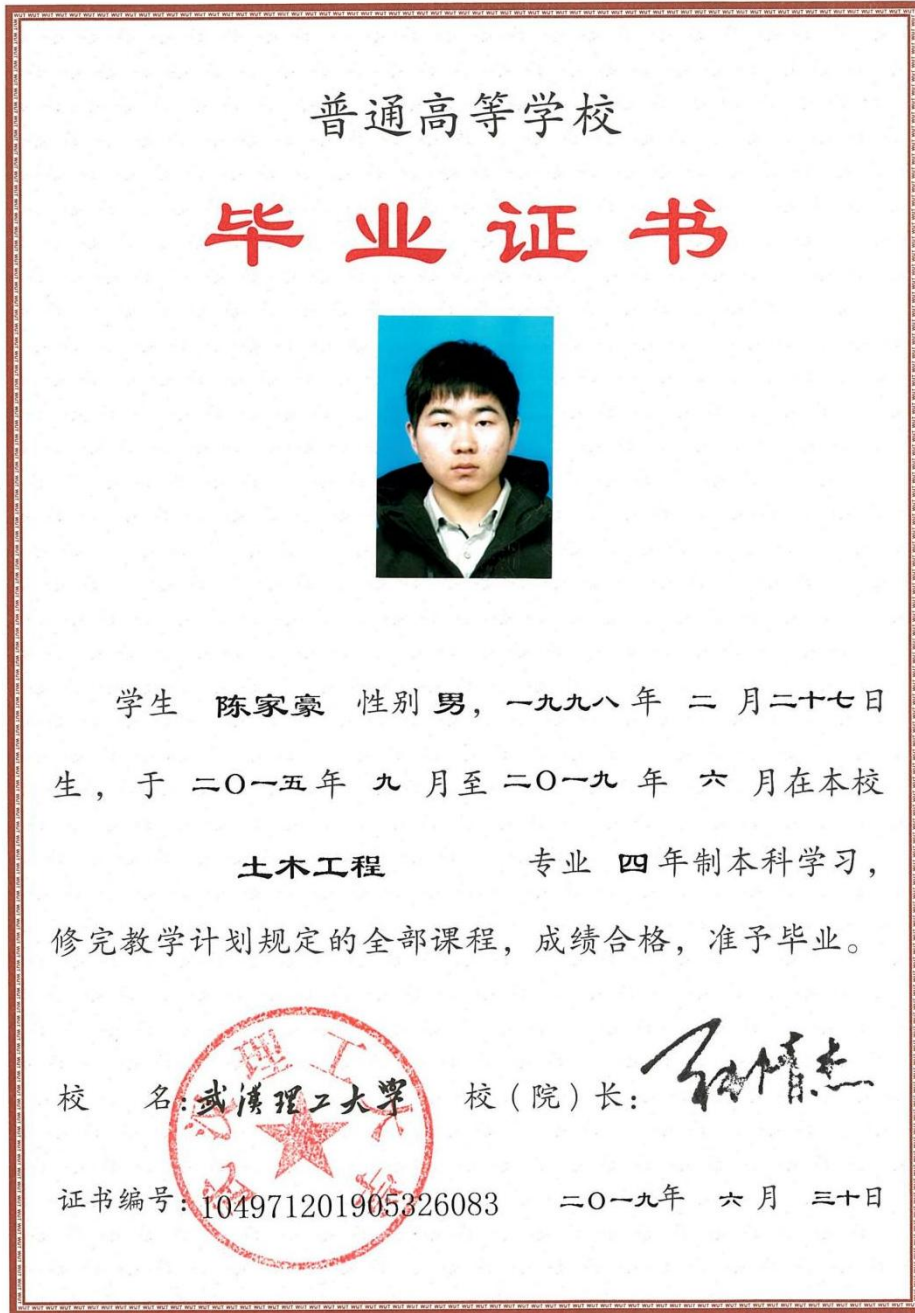 普通高等学校
毕业证书
学生 陈家豪 性别 男，一九九八年 二 月二十七日
生，于 二〇一五年 九 月至二〇一九 年 六 月在本校
土木工程 专业 四年制本科学习，
修完教学计划规定的全部课程，成绩合格，准予毕业。
校 名：武漢理工大學 校（院）长：
证书编号：104971201905326083 二〇一九年 六 月 三十日